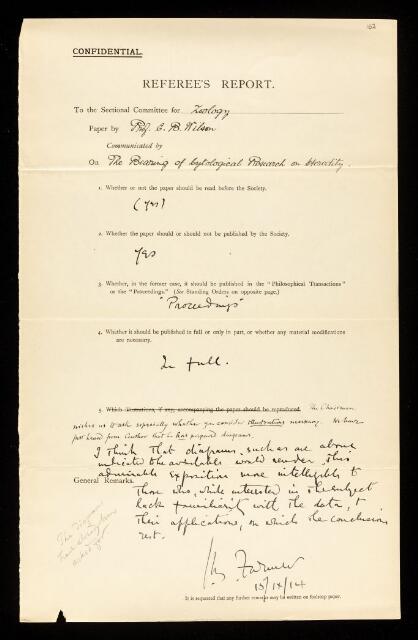 162
CONFIDENTIAL.
REFEREE'S REPORT.
To the Sectional Committee for Zoology
Paper by Prof. E. B. Wilson
Communicated by
On The Bearing of Cytological Research on Heredity.
1. Whether or not the paper should be read before the Society.
(yes)
2. Whether the paper should or should not be published by the Society.
Yes
3. Whether, in the former case, it should be published in the "Philosophical Transactions"
or the "Proceedings." (See Standing Orders on opposite page.)
"Proceedings"
4. Whether it should be published in full or only in part, or whether any material modifications
are necessary.
In full.
5. Which illustrations, if any, accompanying the paper should be reproduced. The Chairman
wishes us to ask especially whether you consider illustrations necessary. We have
just heard from Author that he has prepared diagrams.
I think that diagrams, such as are above
indicated to be available would render this
admirable exposition more intelligible to
General Remarks. Those who, while interested in the subject
lack familiarity with the data, &
their applications, on which the conclusions
rest.
The
that
asked for
J.B. Farmer
15/IX/14
It is requested that any further remarks may be written on foolscap paper.